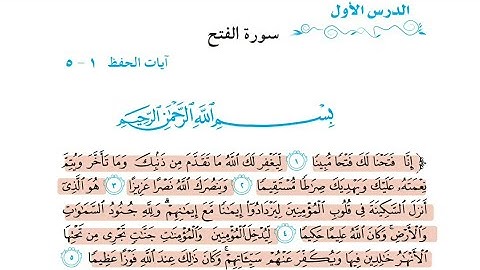 الدرس الأول
سورة الفتح
آيات الحفظ ١ - ٥
بِسْمِ اللَّهِ الرَّحْمَٰنِ الرَّحِيمِ
﴿ إِنَّا فَتَحْنَا لَكَ فَتْحًا مُّبِينًا ١ لِّيَغْفِرَ لَكَ ٱللَّهُ مَا تَقَدَّمَ مِن ذَنۢبِكَ وَمَا تَأَخَّرَ وَيُتِمَّ
نِعْمَتَهُۥ عَلَيْكَ وَيَهْدِيَكَ صِرَٰطًا مُّسْتَقِيمًا ٢ وَيَنصُرَكَ ٱللَّهُ نَصْرًا عَزِيزًا ٣ هُوَ ٱلَّذِىٓ
أَنزَلَ ٱلسَّكِينَةَ فِى قُلُوبِ ٱلْمُؤْمِنِينَ لِيَزْدَادُوٓا۟ إِيمَٰنًا مَّعَ إِيمَٰنِهِمْ ۗ وَلِلَّهِ جُنُودُ ٱلسَّمَٰوَٰتِ
وَٱلْأَرْضِ ۚ وَكَانَ ٱللَّهُ عَلِيمًا حَكِيمًا ٤ لِّيُدْخِلَ ٱلْمُؤْمِنِينَ وَٱلْمُؤْمِنَٰتِ جَنَّٰتٍ تَجْرِى مِن تَحْتِهَا
ٱلْأَنْهَٰرُ خَٰلِدِينَ فِيهَا وَيُكَفِّرَ عَنْهُمْ سَيِّـَٔاتِهِمْ ۚ وَكَانَ ذَٰلِكَ عِندَ ٱللَّهِ فَوْزًا عَظِيمًا ٥